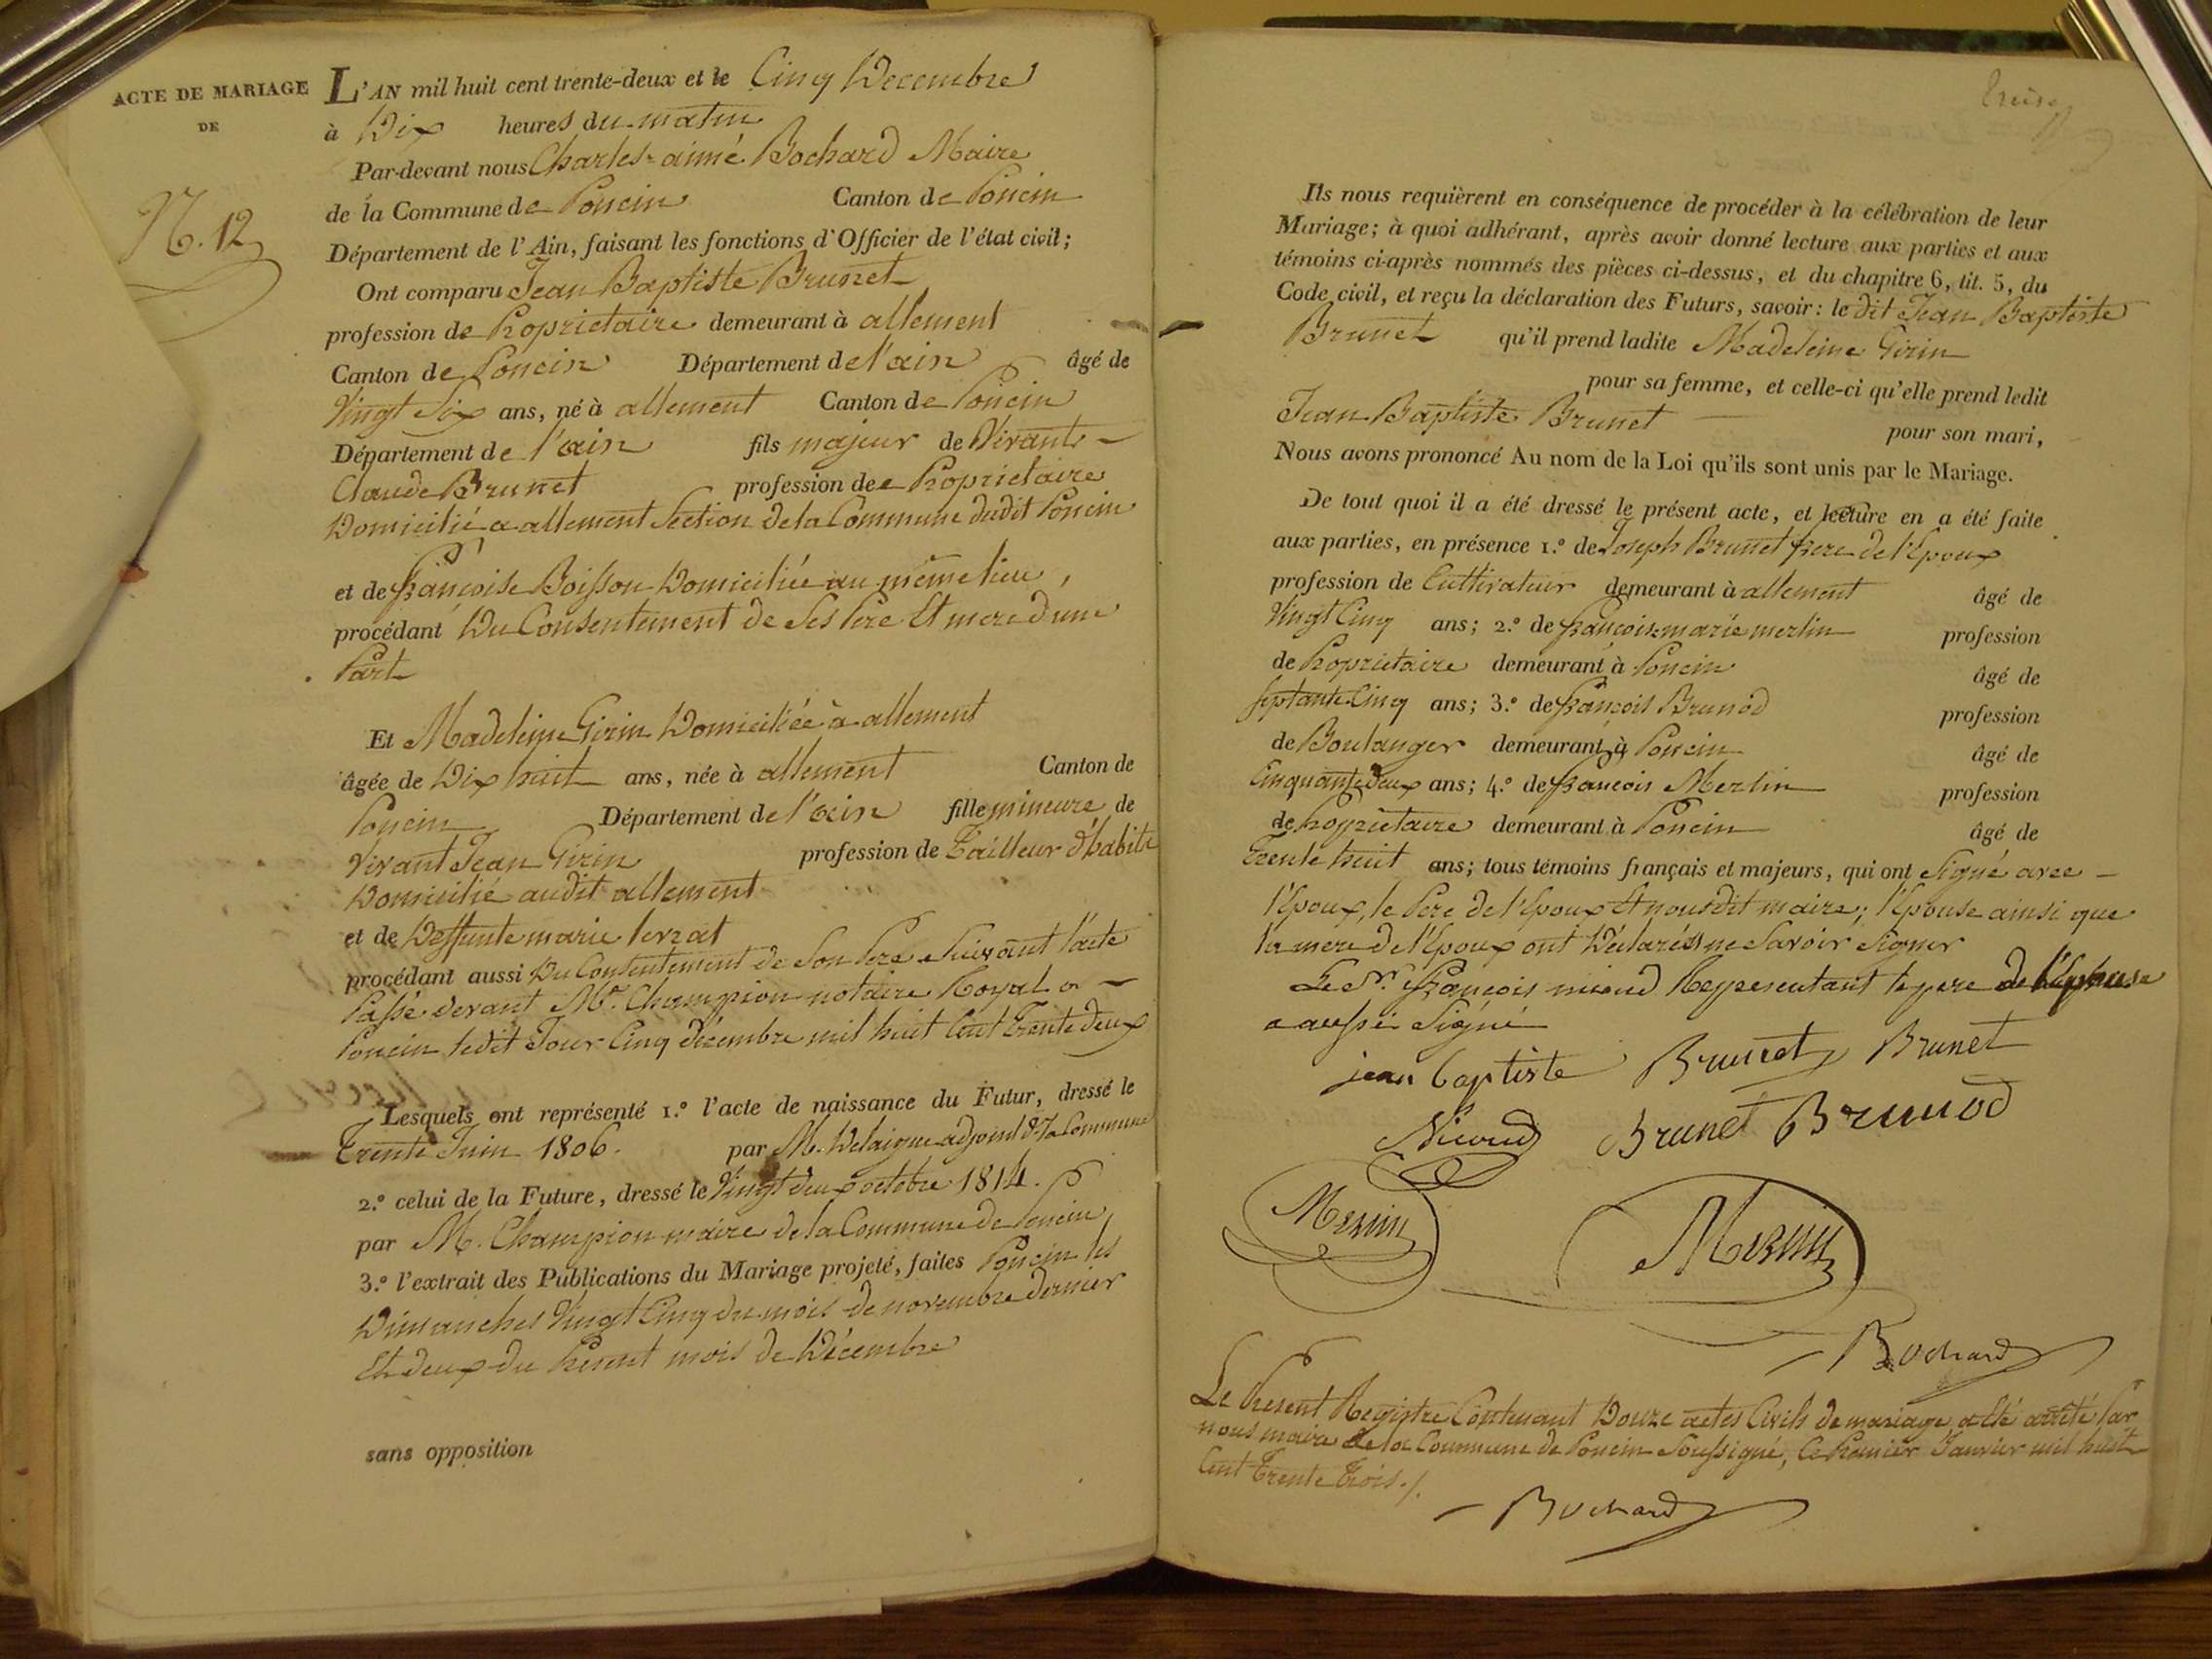 ACTE DE MARIAGE
DE
N.o 12
L'AN mil huit cent trente-deux et le Cinq Decembre
à Dix heures du matin
Par-devant nous Charles-aimé Bochard Maire
de la Commune de Poncin Canton de Poncin
Département de l'Ain, faisant les fonctions d'Officier de l'état civil;
Ont comparu Jean Baptiste Brunet
profession de Proprietaire demeurant à allement
Canton de Poncin Département de l'ain âgé de
Vingt Six ans, né à allement Canton de Poncin
Département de l'ain fils majeur de Vivants
Claude Brunet profession de Proprietaire
Domicilié a allement Section de la Commune dudit Poncin
et de françoise Boisson Domiciliée au même lieu,
procédant Du Consentement de Ses Pere Et mere d'une
Part
Et Madeleine Girin Domiciliée à allement
âgée de Dix huit ans, née à allement Canton de
Poncin Département de l'ain fille mineure de
Vivant Jean Girin profession de Tailleur d'habits
Domicilié audit allement
et de Deffunte marie levrat
procédant aussi Du Consentement de Son Pere Suivant l'acte
Passé devant Me. Champion notaire Royal a
Poncin ledit Jour Cinq décembre mil huit Cent Trente deux
Lesquels ont représenté 1.º l'acte de naissance du Futur, dressé le
Trente Juin 1806. par M. Delaigue adjoint de la Commune
2.º celui de la Future, dressé le Vingt deux octobre 1814.
par M. Champion maire de la Commune de Poncin
3.º l'extrait des Publications du Mariage projeté, faites Poncin les
Dimanches Vingt Cinq du mois de novembre dernier
Et deux du Present mois de Décembre
sans opposition
Treize
Ils nous requièrent en conséquence de procéder à la célébration de leur
Mariage; à quoi adhérant, après avoir donné lecture aux parties et aux
témoins ci-après nommés des pièces ci-dessus, et du chapitre 6, tit. 5, du
Code civil, et reçu la déclaration des Futurs, savoir: le dit Jean Baptiste
Brunet qu'il prend ladite Madeleine Girin
pour sa femme, et celle-ci qu'elle prend ledit
Jean Baptiste Brunet pour son mari,
Nous avons prononcé Au nom de la Loi qu'ils sont unis par le Mariage.
De tout quoi il a été dressé le présent acte, et lecture en a été faite
aux parties, en présence 1.º de Joseph Brunet frere de l'Epoux
profession de Cultivateur demeurant à allement âgé de
Vingt Cinq ans; 2.º de françois-marie merlin profession
de Proprietaire demeurant à Poncin âgé de
Septante Cinq ans; 3.º de françois Brunod profession
de Boulanger demeurant à Poncin âgé de
Cinquante deux ans; 4.º de françois Merlin profession
de Proprietaire demeurant à Poncin âgé de
Trente huit ans; tous témoins français et majeurs, qui ont Signé avec
l'Epoux, le Pere de l'Epoux Et nousdit maire; l'Epouse ainsi que
la mere de l'Epoux ont Déclarées ne Savoir Signer
Le Sr. françois nicoud Representant le pere de l'épouse
a aussi Signé
jean baptiste Brunet Brunet
Nicoud Brunet Brunod
Merlin Merlin
Bochard
Le Present Registre Contenant Douze actes Civils de mariage a Eté arrêté Par
nous maire de la Commune de Poncin Soussigné, Ce Premier Janvier mil huit
Cent Trente Trois./.
Bochard